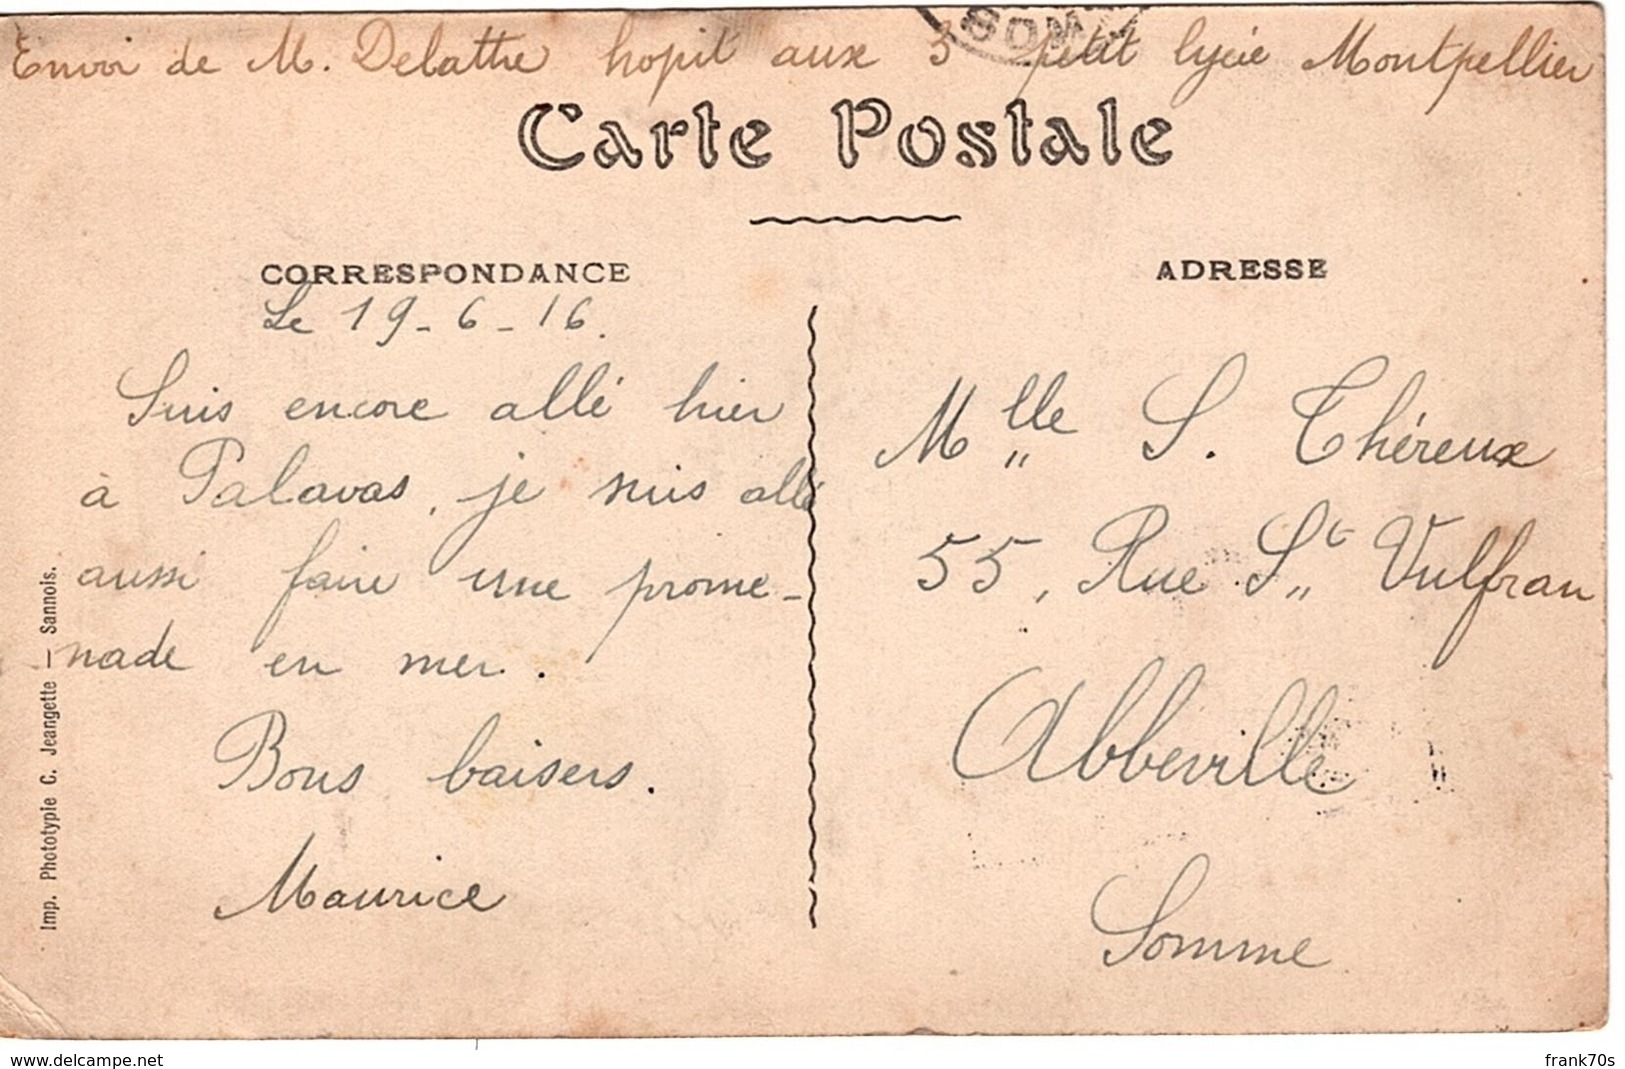 SOMME
Envoi de M. Delattre hopit aux 3 petit lycée Montpellier
Carte Postale
CORRESPONDANCE
Le 19-6-16.
Suis encore allé hier
à Palavas, je suis allé
aussi faire une prome-
nade en mer.
Bons baisers.
Maurice
Imp. Phototypie C. Jeangette — Sannois.
ADRESSE
Mlle S. Théreux
55, Rue St Vulfran
Abbeville
Somme
www.delcampe.net
frank70s